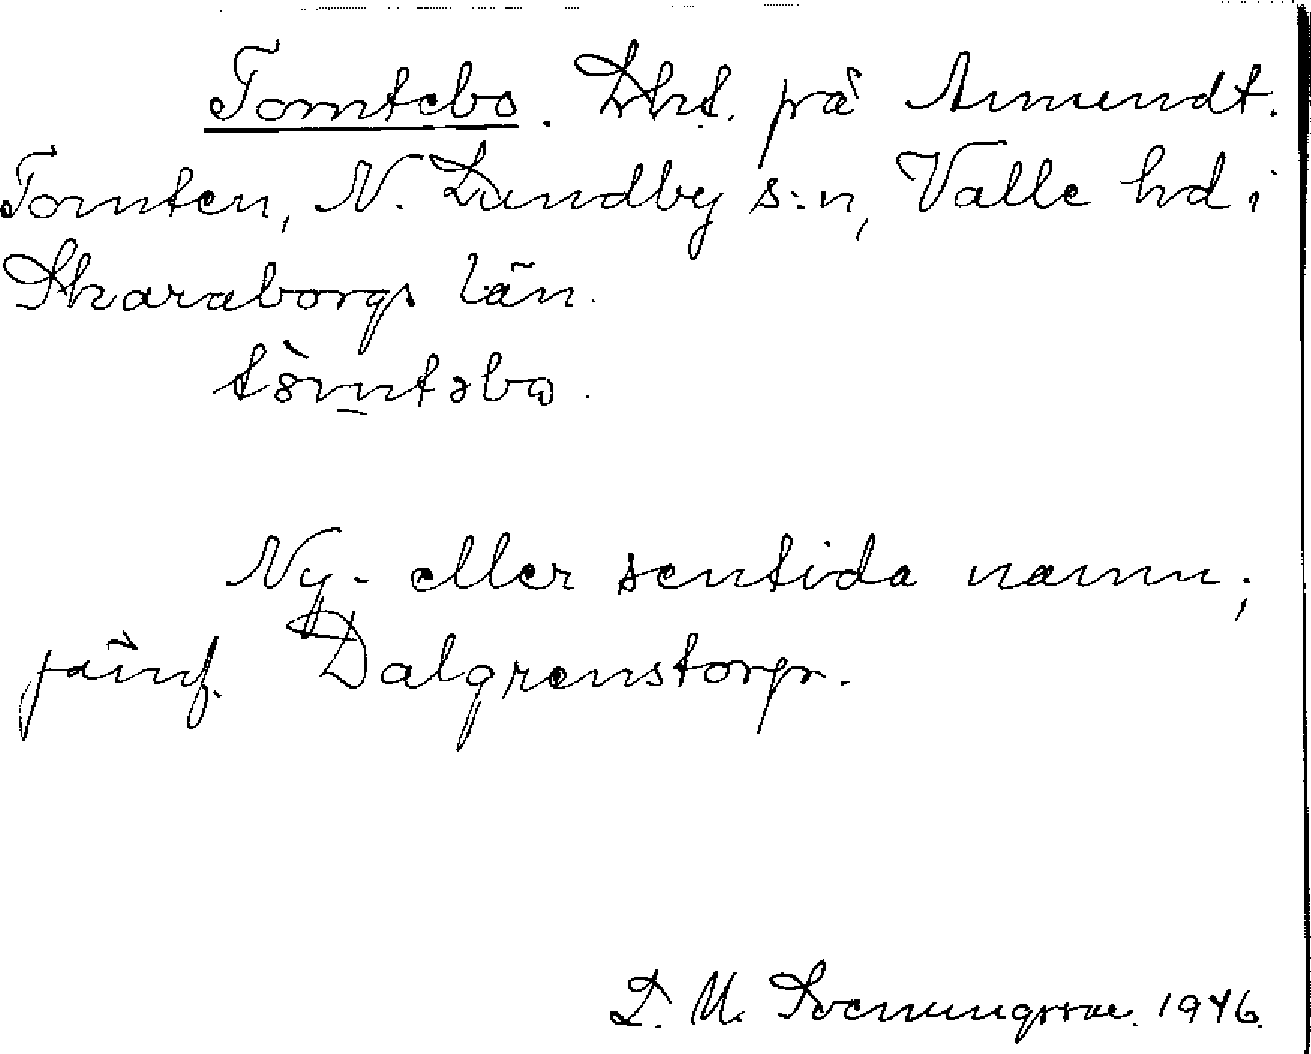 Tomtebo. Lht. på Amundt.
Tomten, N. Lundby s:n, Valle hd i
Skaraborgs län.
tòmtəbω.
Ny- eller sentida namn;
jämf. Dalgrenstorp.
L. M. Svenungsson. 1946.